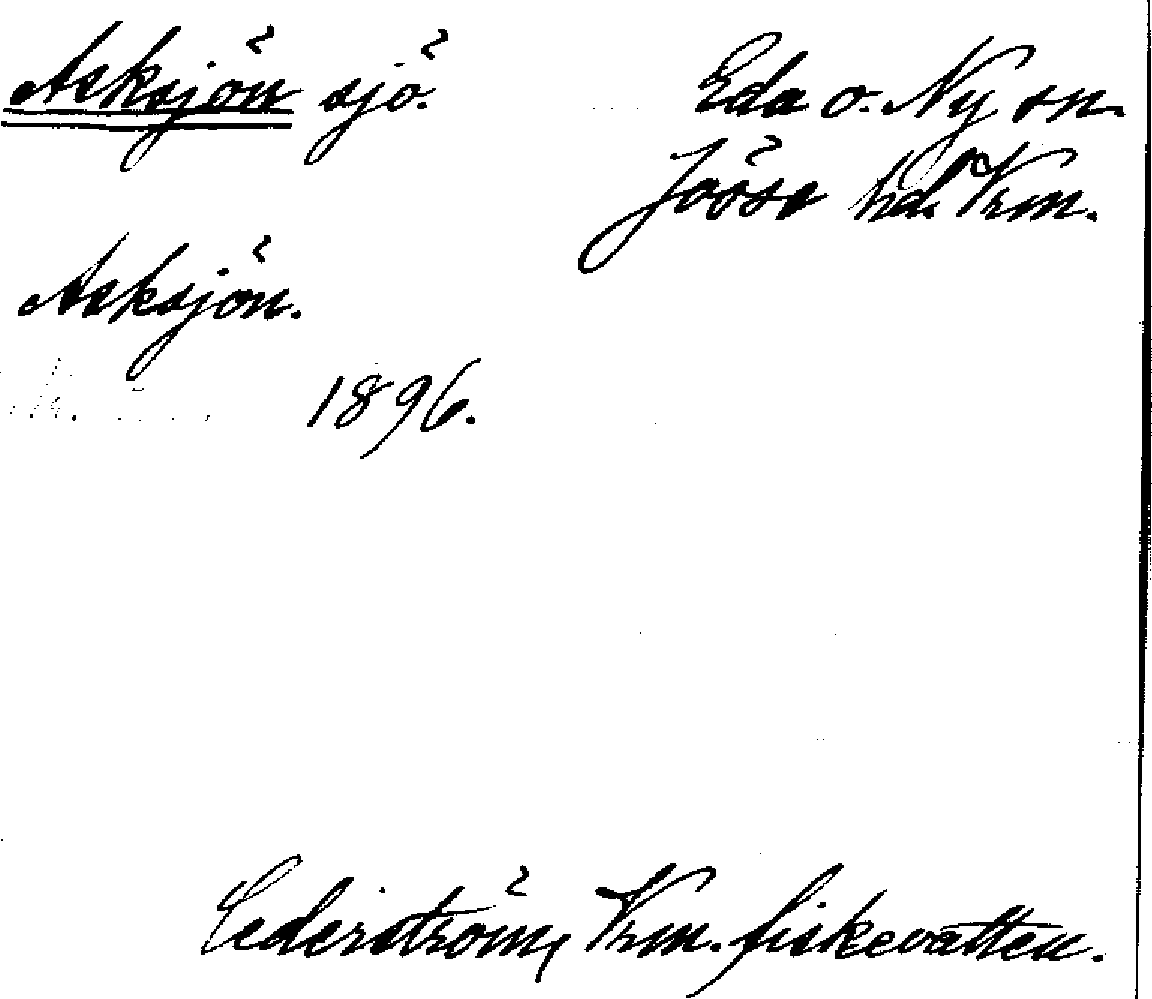 Asksjön sjö. Eda o. Ny sn.
Jösse hd. Vrm.
Asksjön.
1896.
Cederström, Vrm. fiskevatten.